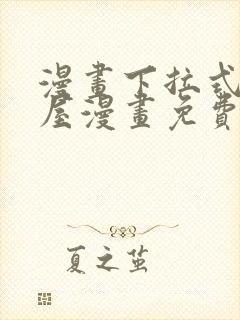 漫畫下拉式
屋漫畫免費
夏之茧